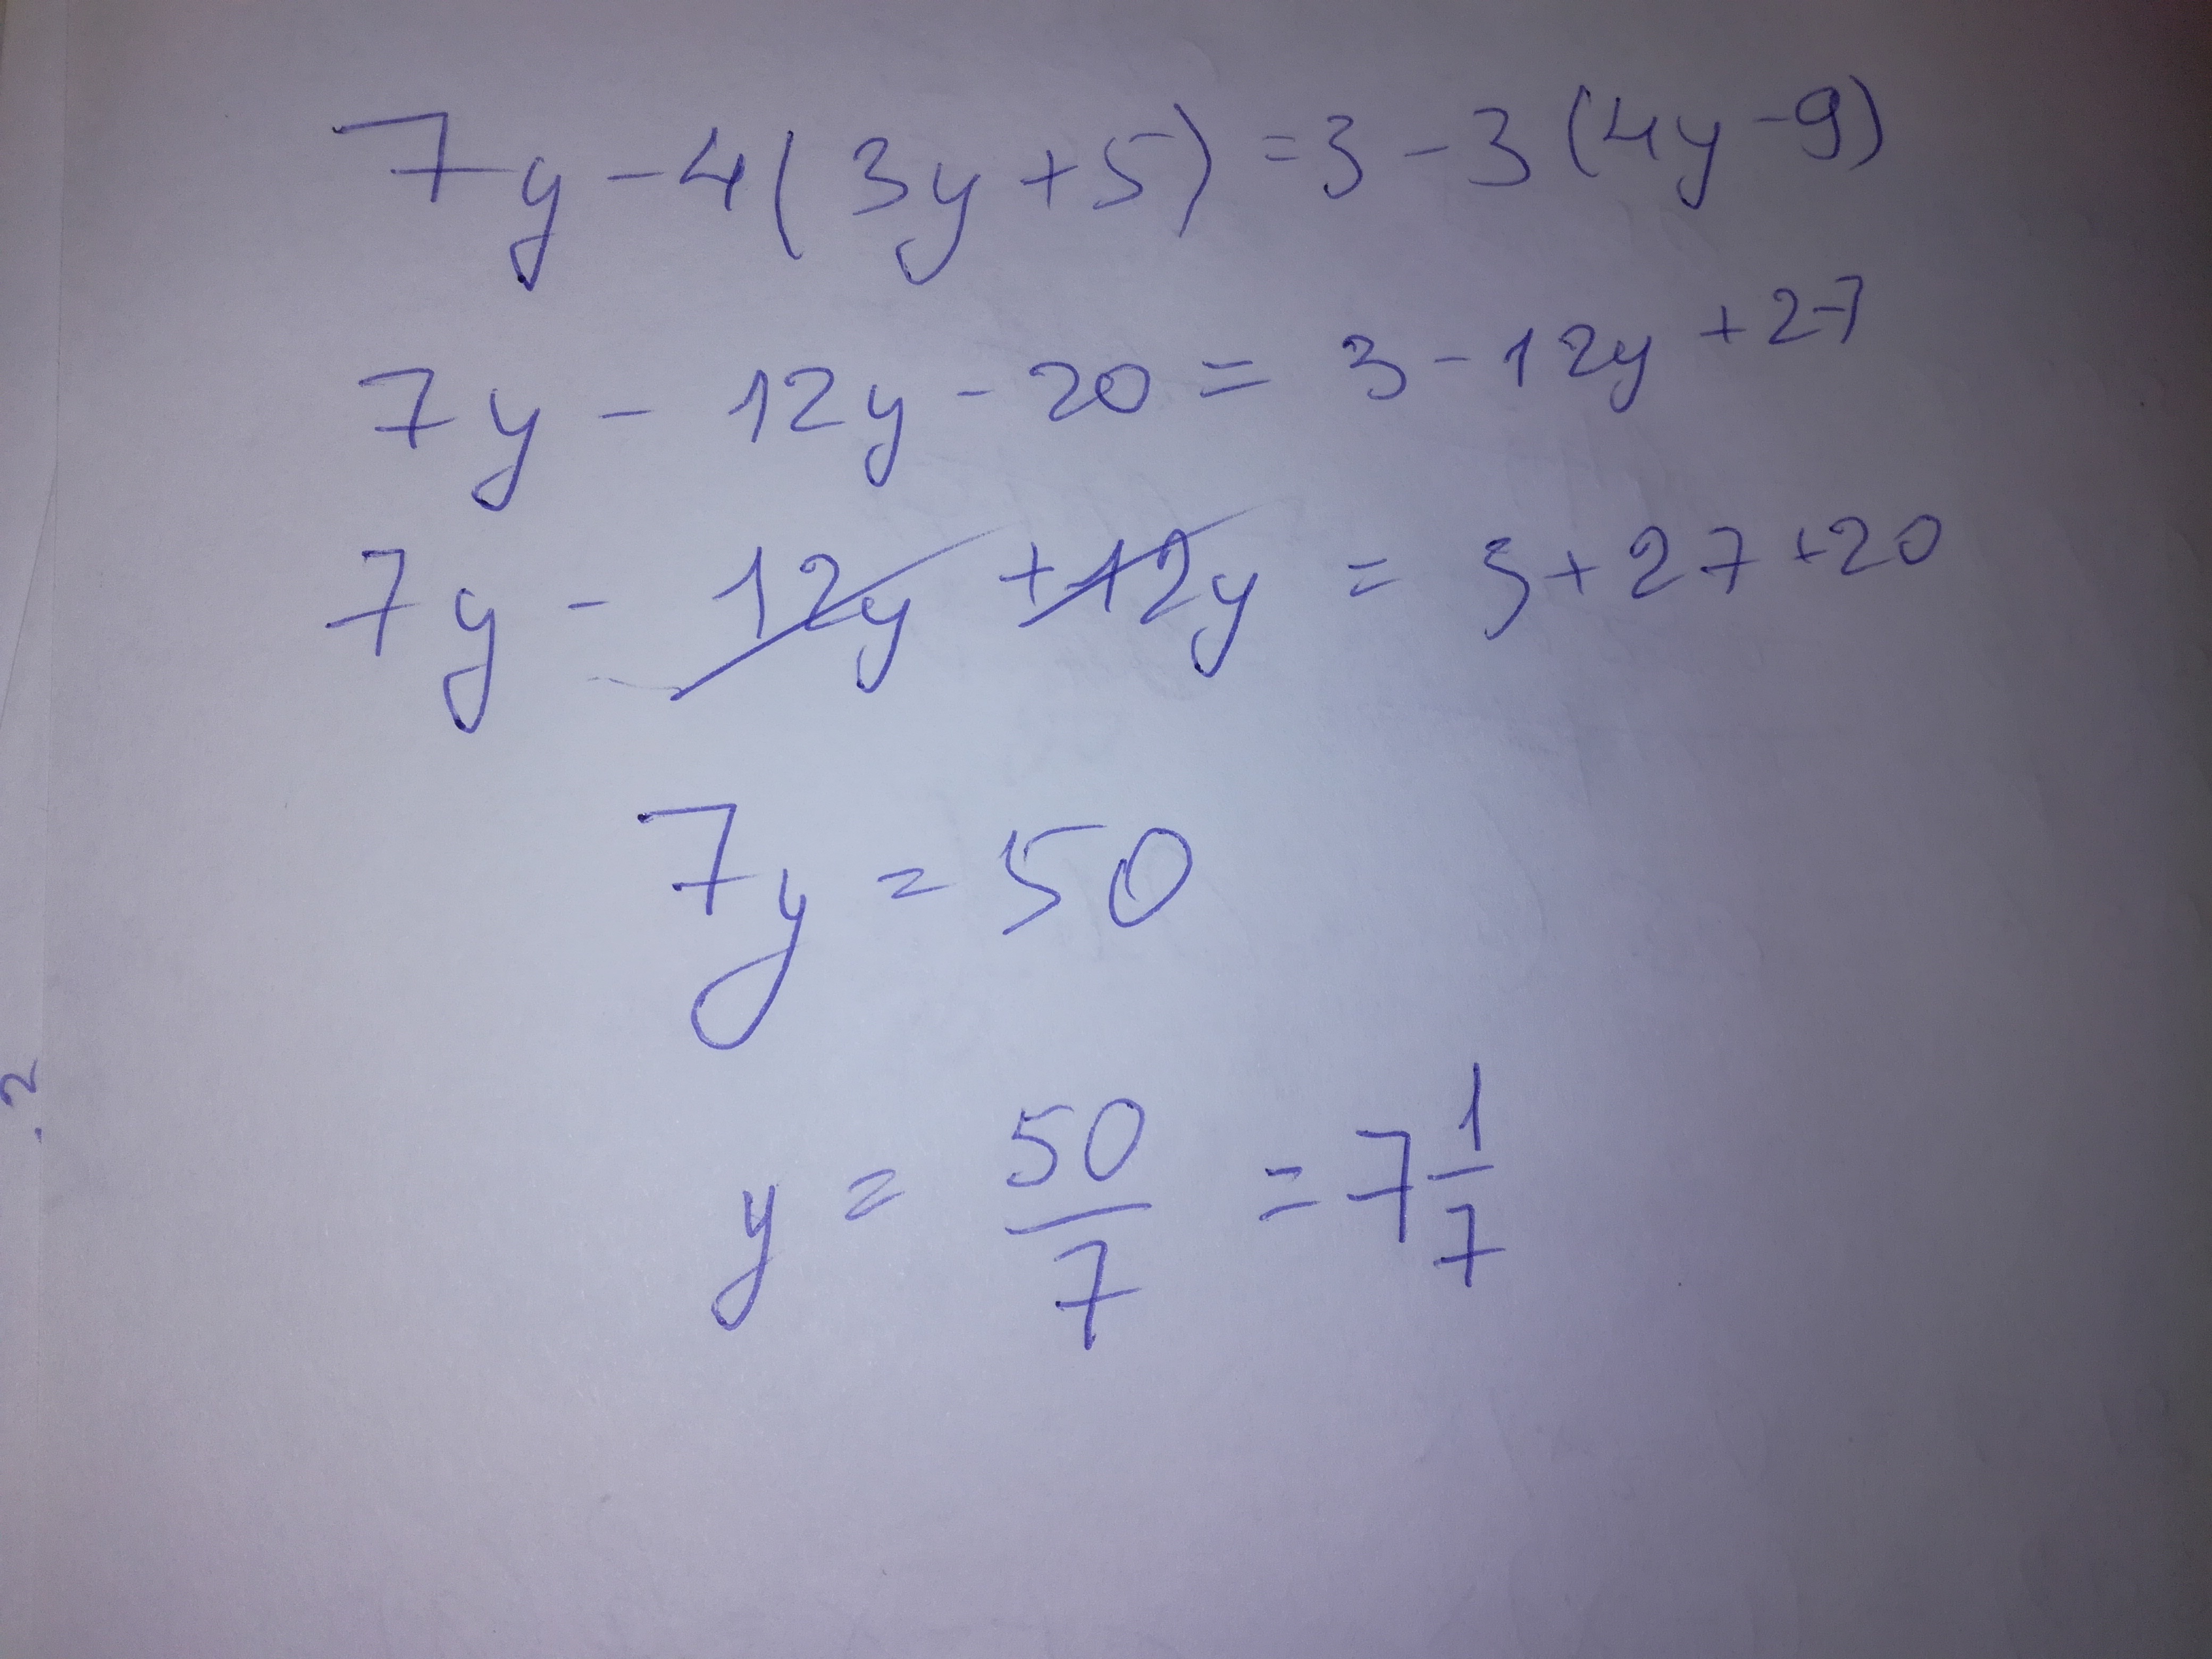 7y - 4(3y + 5) = 3 - 3(4y - 9)
7y - 12y - 20 = 3 - 12y + 27
7y - 12y + 12y = 3 + 27 + 20
7y = 50
y = 50/7 = 7 1/7
?